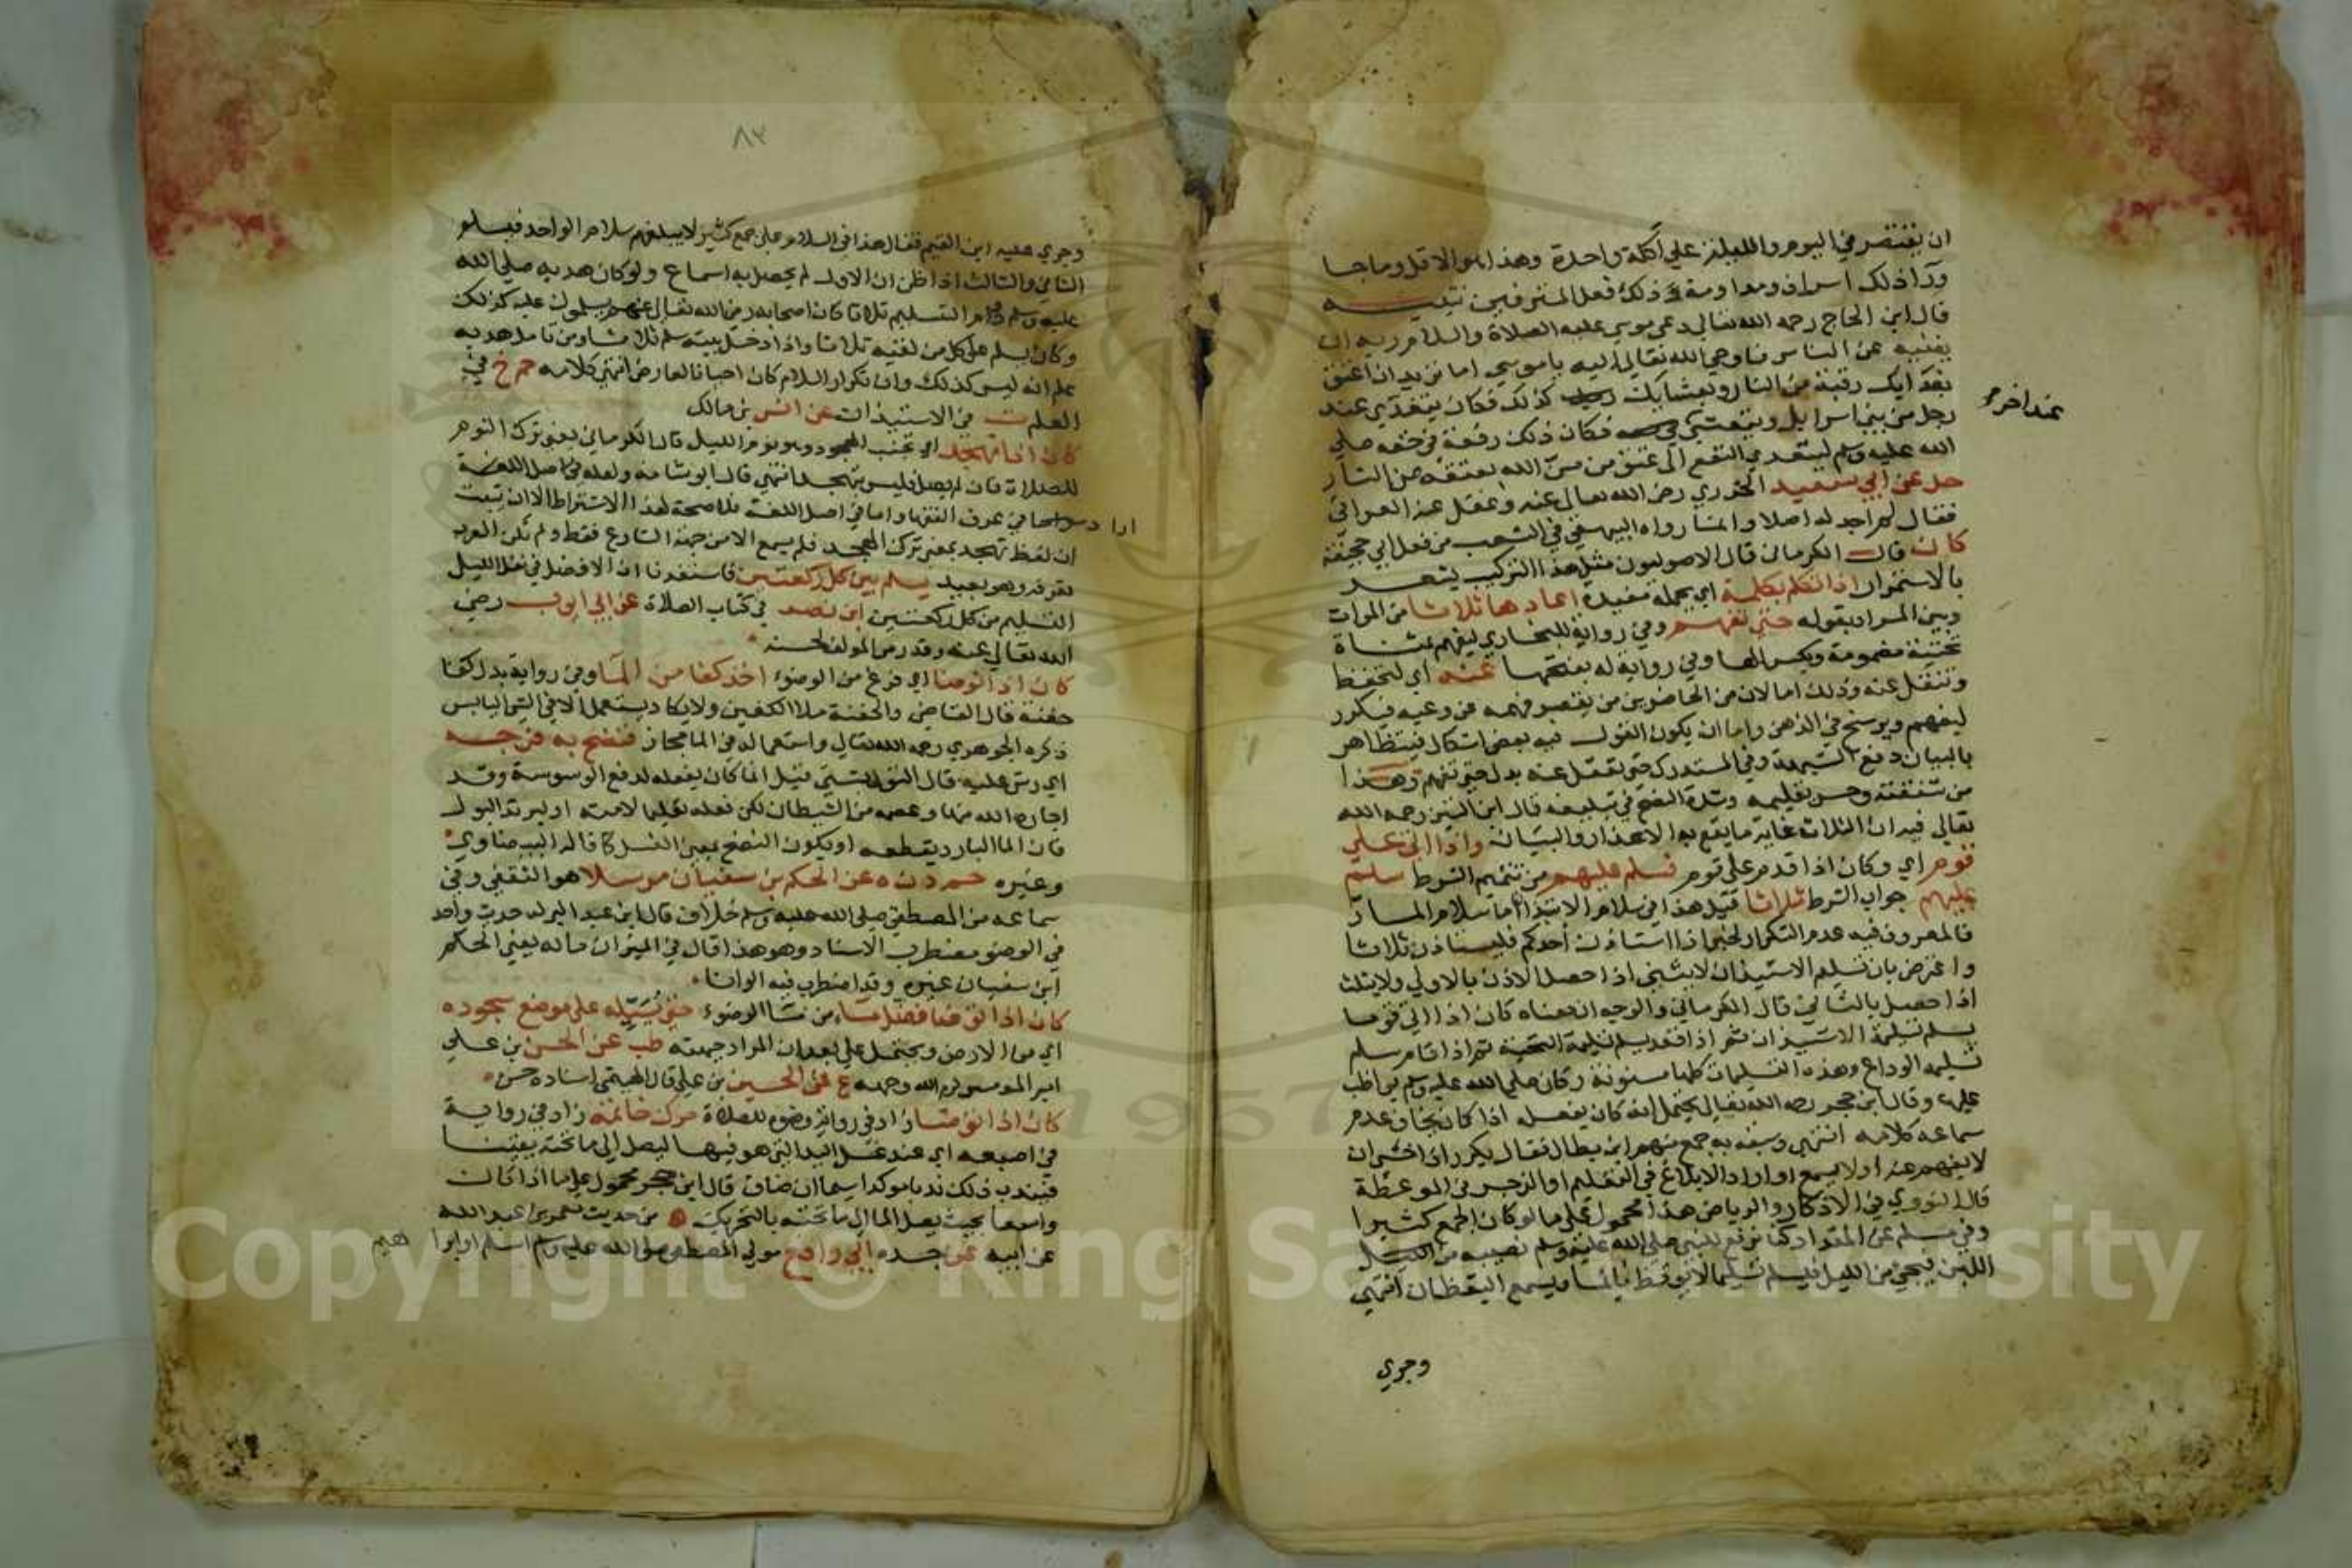 ان يقتصر في اليوم والليلة علي اكلة واحدة وهذا هو الاقل وما جا
ورا ذلك اسراف ومداومة ذلك فعل المترفين تنبيه
قال ابن الحاج رحمه الله تعالي دعي موسي عليه الصلاة والسلام ربه ان
يغنيه عن الناس فاوحي الله تعالي اليه يا موسي اما تريد ان اعتق
بغدايك رقبة من النار وبعشايك كذلك فكان يتغدي عند
رجل من بني اسرايل ويتعشي فكان ذلك رفعة في حقه صلي
عند اخر
الله عليه وسلم ليتعدي النفع الي عتق من من الله بعتقه من النار
حل عن ابي سعيد الخدري رضي الله تعالي عنه وغفل عنه العراقي
فقال لم اجد له اصلا وانما رواه البيهقي في الشعب من فعل ابي جحيفة
كان قال الكرماني قال الاصوليون مثل هذا التركيب يشعر
بالاستمرار اذا تكلم بكلمة اي بجملة مفيدة اعادها ثلاثا من المرات
وبين المراد بقوله حتي تفهم وفي رواية للبخاري ليفهم بمثناة
تحتية مضمومة وبكسر الها وفي رواية له بفتحها عنه اي لتحفظ
وتنقل عنه وذلك اما لان من الحاضرين من يقصر فهمه عن وعيه فيكرر
ليفهم ويرسخ في الذهن واما ان يكون القول فيه بعض اشكال فيتظاهر
بالبيان دفع الشبهة وفي المستدرك حتي تعقل عنه بدل حتي تفهم وهذا
من شفقته وحسن تعليمه وشدة النصح في تبليغه قال ابن التين رحمه الله
تعالي فيه ان الثلاث غاية ما يقع به الاعذار والبيان واذا اتي علي
قوم اي وكان اذا قدم علي قوم فسلم عليهم من تتميم الشرط سلم
عليهم جواب الشرط ثلاثا قيل هذا في سلام الابتدا اما سلام المار
فالمعروف فيه عدم التكرار لخبر اذا استاذن احدكم فليستاذن ثلاثا
واعترض بان تسليم الاستيذان لا يثني اذا حصل الاذن بالاولي ولا يثلث
اذا حصل بالثاني قال الكرماني والوجه ان معناه كان اذا اتي قوما
يسلم تسليمة الاستيذان ثم اذا قعد يسلم تسليمة التحية ثم اذا قام سلم
تسليمة الوداع وهذه التسليمات كلها مسنونة وكان صلي الله عليه وسلم يواظب
عليها وقال ابن حجر رحمه الله تعالي يحتمل انه كان يفعله اذا كان يخاف عدم
سماعه كلامه انتهي وسبقه به جمع منهم ابن بطال فقال يكرر اذا خشي ان
لا يفهم عنه اولا يسمع او اراد الابلاغ في التعليم او الزجر في الموعظة
قال النووي في الاذكار والرياض هذا محمول علي ما لو كان الجمع كثيرا
وفي مسلم عن المقداد كنا نرفع للنبي صلي الله عليه وسلم نصيبه من
اللبن فيجي من الليل فيسلم تسليما لا يوقظ نائما ويسمع اليقظان انتهي
وجري
٨٣
وجري عليه ابن القيم فقال هذا في السلام علي جمع كثير لا يبلغهم سلام الواحد فيسلم
الثاني والثالث اذا ظن ان الاول لم يحصل به اسماع ولو كان هديه صلي الله
عليه وسلم دوام التسليم ثلاثا كان اصحابه رضي الله تعالي عنهم يسلمون عليه كذلك
وكان يسلم علي كل من لقيه ثلاثا واذا دخل بيته سلم ثلاثا ومن تامل هديه
علم انه ليس كذلك وان تكرار السلام كان احيانا لعارض انتهي كلامه حم خ في
العلم ت في الاستيذان عن انس بن مالك
كان اذا تهجد اي تجنب الهجود وهو نوم الليل قال الكرماني يعني ترك النوم
للصلاة فان لم يصل فليس بتهجد انتهي قال ابو شامة ولعله في اصل اللغة
اراد في عرف الفقها واما في اصل اللغة فلا صحة لهذا الاشتراط الا ان تبت
ان لفظ تهجد بمعني ترك الهجود فلم يسمع الا من جهة الشارع فقط ولم تكن العرب
تعرفه وهو بعيد يسلم بين كل ركعتين فاستفدنا ان الافضل في نفل الليل
التسليم من كل ركعتين ابن نصر في كتاب الصلاة عن ابي ايوب رضي
الله تعالي عنه وقد رمز المولف لحسنه
كان اذا توضا اي فرغ من الوضوء اخذ كفا من المآ وفي رواية بدل كفا
حفنة قال القاضي والحفنة ملا الكفين ولا يكاد يستعمل الا في الشي اليابس
ذكره الجوهري رحمه الله تعالي واستعماله في الما مجاز فنضح به فرجه
اي رش عليه قال التوربشتي قيل انما كان يفعله لدفع الوسوسة وقد
اجاره الله منها وعصمه من الشيطان لكن فعله تعليما لامته او ليرتد البول
فان الما البارد يقطعه او يكون النضح بمعني الغسل كما قاله البيضاوي
وغيره حم د ن ه عن الحكم بن سفيان مرسلا هو الثقفي وفي
سماعه من المصطفي صلي الله عليه وسلم خلاف قال ابن عبد البر له حديث واحد
في الوضو مضطرب الاسناد وهو هذا قال في الميزان ماله يعني الحكم
ابن سفيان غيره وقد اضطرب فيه الوانا
كان اذا توضا فضل مآء من مآ الوضوء حتي يسيله علي موضع سجوده
اي من الارض ويحتمل علي بعد ان المراد جبهته طب عن الحسن بن علي
امير المومنين كرم الله وجهه ع عن الحسين بن علي قال الهيتمي اسناده حسن
كان اذا توضا زاد في رواية وضوه للصلاة حرك خاتمه زاد في رواية
في اصبعه اي عند غسل اليد التي هو فيها ليصل الي ما تحته يقينا
فيندب ذلك ندبا موكدا سيما ان ضاق قال ابن حجر محمول علي ما اذا كان
واسعا بحيث يصل الما الي ما تحته بالتحريك ه من حديث معمر بن عبد الله
عن ابيه عن جده ابي رافع مولي المصطفي صلي الله عليه وسلم اسلم او ابرا هيم